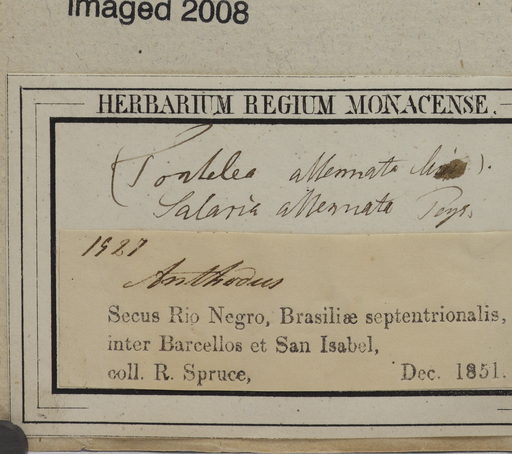 Imaged 2008
HERBARIUM REGIUM MONACENSE.
alternata
Salacia alternata Peyr.
1927
Anthodus
Secus Rio Negro, Brasiliæ septentrionalis,
inter Barcellos et San Isabel,
coll. R. Spruce, Dec. 1851.